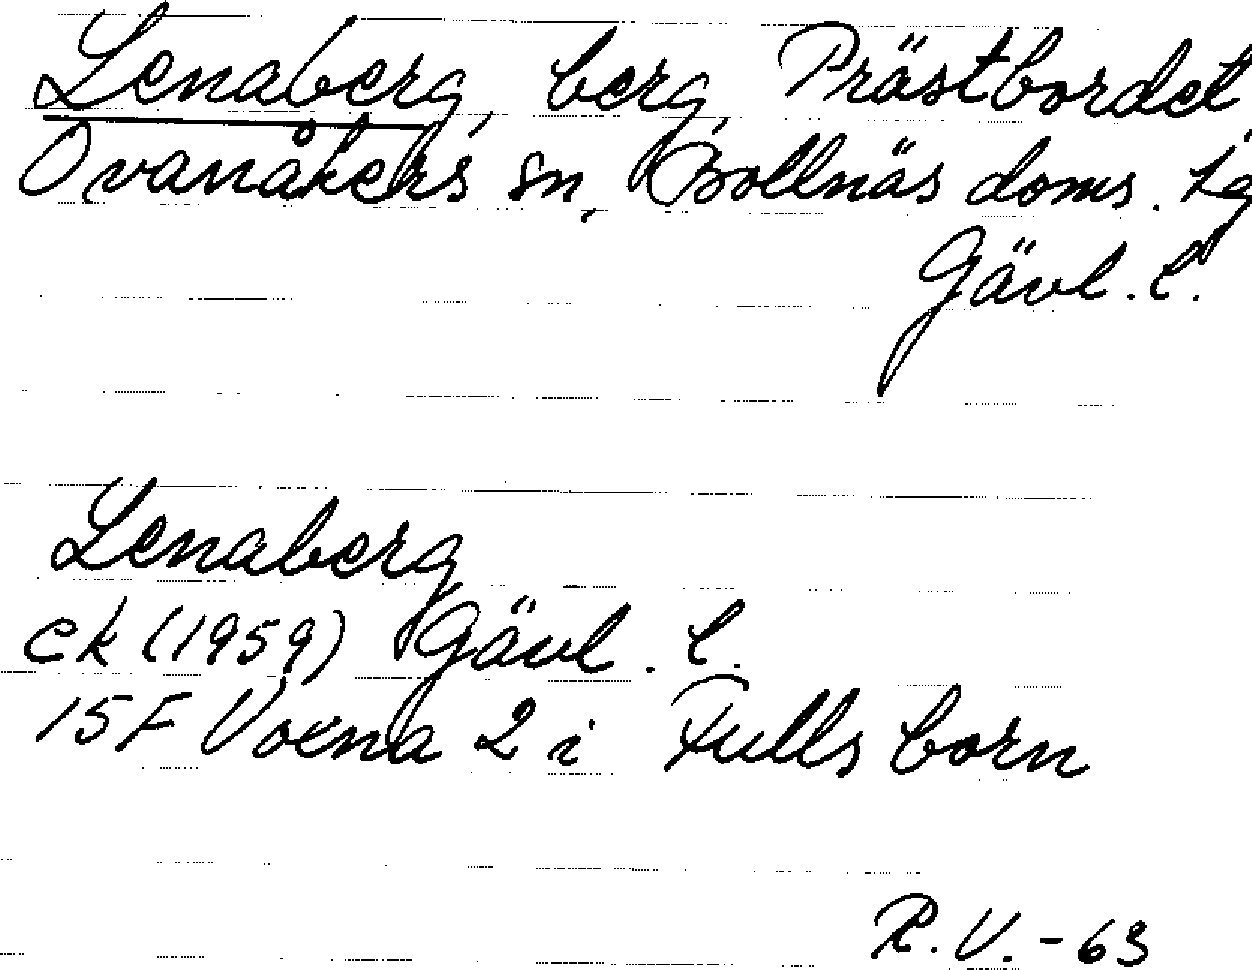 Lenaberg, berg, Prästbordet
Ovanåkers sn, Bollnäs doms. lg
Gävl. l.
Lenaberg
ek (1959) Gävl. l.
15F Voxna 2 i Fullsborn
R.V. -63